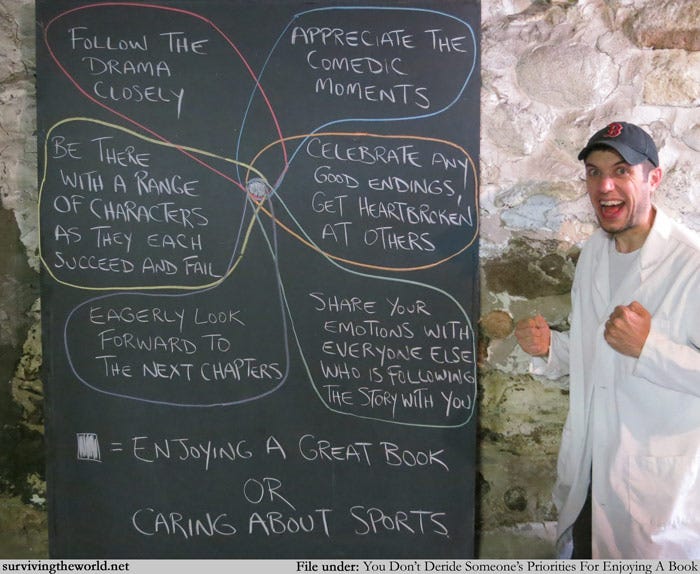 FOLLOW THE
DRAMA
CLOSELY
APPRECIATE THE
COMEDIC
MOMENTS
BE THERE
WITH A RANGE
OF CHARACTERS
AS THEY EACH
SUCCEED AND FAIL
CELEBRATE ANY
GOOD ENDINGS,
GET HEARTBROKEN
AT OTHERS
EAGERLY LOOK
FORWARD TO
THE NEXT CHAPTERS
SHARE YOUR
EMOTIONS WITH
EVERYONE ELSE
WHO IS FOLLOWING
THE STORY WITH YOU
= ENJOYING A GREAT BOOK
OR
CARING ABOUT SPORTS
B
survivingtheworld.net
File under: You Don't Deride Someone's Priorities For Enjoying A Book